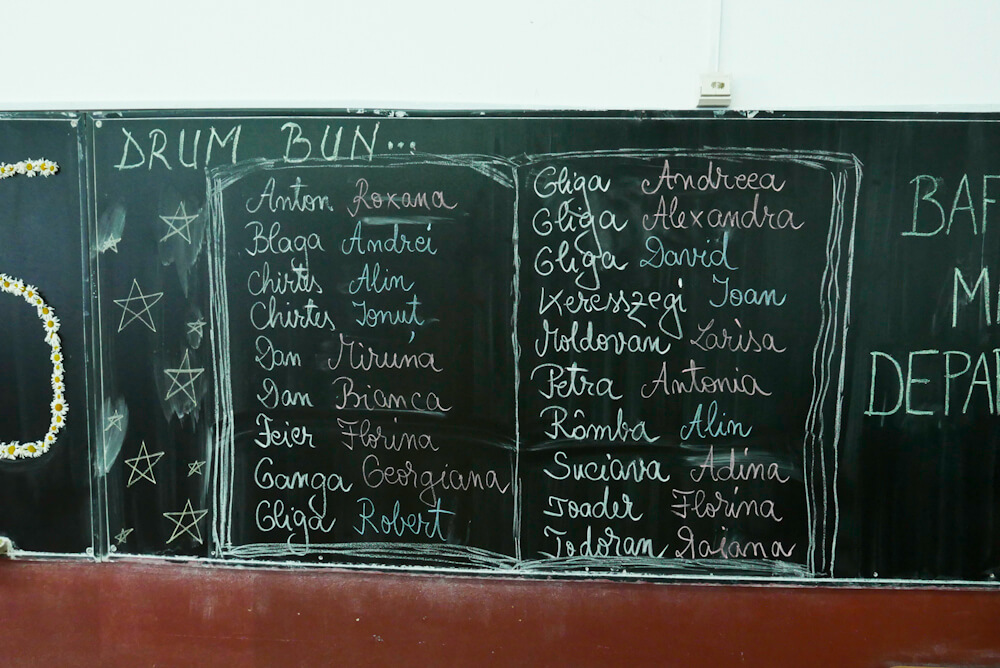 DRUM BUN...
Anton Roxana
Blaga Andrei
Chirteș Alin
Chirteș Ionuț
Dan Miruna
Dan Bianca
Feier Florina
Ganga Georgiana
Gliga Robert
Gliga Andreea
Gliga Alexandra
Gliga David
Keresszegi Ioan
Moldovan Larisa
Petra Antonia
Rômba Alin
Suciava Adina
Toader Florina
Todoran Daiana
BAF
M
DEPAR